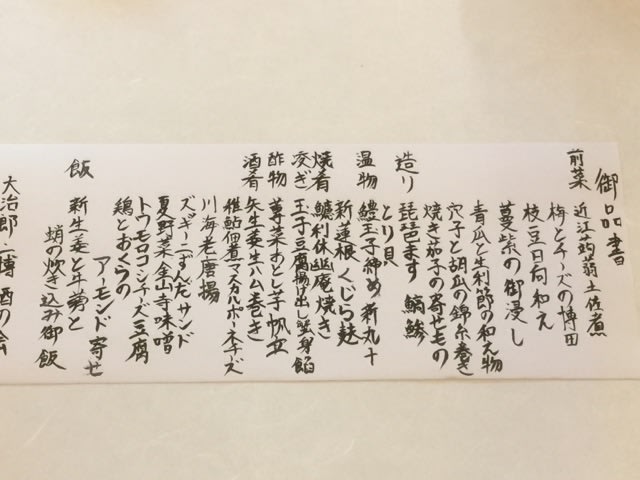 御品書
前菜 近江蒟蒻土佐煮
梅とチーズの博田
枝豆日向和え
蔓紫の御浸し
青瓜と生利節の和え物
穴子と胡瓜の錦糸巻き
焼き茄子の寄せもの
造り 琵琶ます 鯛 鯵
とり貝
温物 鱧玉子締め 新丸十
新蓮根 くじら麩
焼肴 鱸利休幽庵焼き
凌ぎ 玉子豆腐揚げ出し 蟹身餡
酢物 蓴菜おとし子 帆立
酒肴 矢生姜生ハム巻き
稚鮎佃煮マスカルポーネチーズ
川海老唐揚
ズッキーニずんだサンド
夏野菜金山寺味噌
トウモロコシチーズ豆腐
鶏とおくらの
アーモンド寄せ
飯 新生姜と牛蒡と
蛸の炊き込み御飯
大治郎 博 酒の会